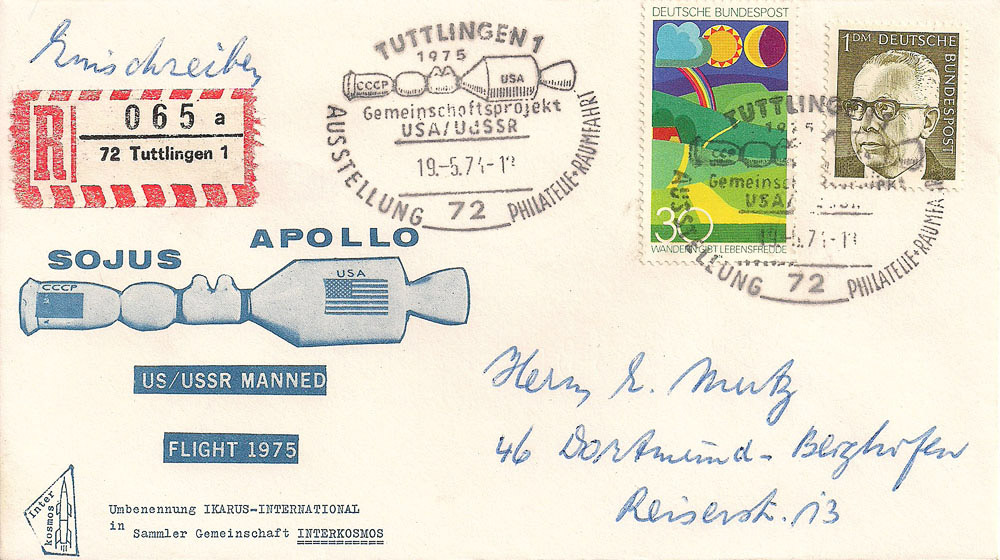 Einschreiben
R
065 a
72 Tuttlingen 1
TUTTLINGEN 1
1975
CCCP
USA
Gemeinschaftsprojekt
USA/UdSSR
19.-5.74-1
AUSSTELLUNG 72 PHILATELIE+RAUMFAHRT
DEUTSCHE BUNDESPOST
30
WANDERN GIBT LEBENSFREUDE
1 DM DEUTSCHE BUNDESPOST
TUTTLINGEN
1975
Gemeinschaftsprojekt
USA/
19.-5.74-1
AUSSTELLUNG 72 PHILATELIE+RAUMFA
SOJUS APOLLO
CCCP
USA
US/USSR MANNED
FLIGHT 1975
Herrn E. Mutz
46 Dortmund-Berghofen
Reiserstr. 13
Inter
kosmos
Umbenennung IKARUS-INTERNATIONAL
in
Sammler Gemeinschaft INTERKOSMOS